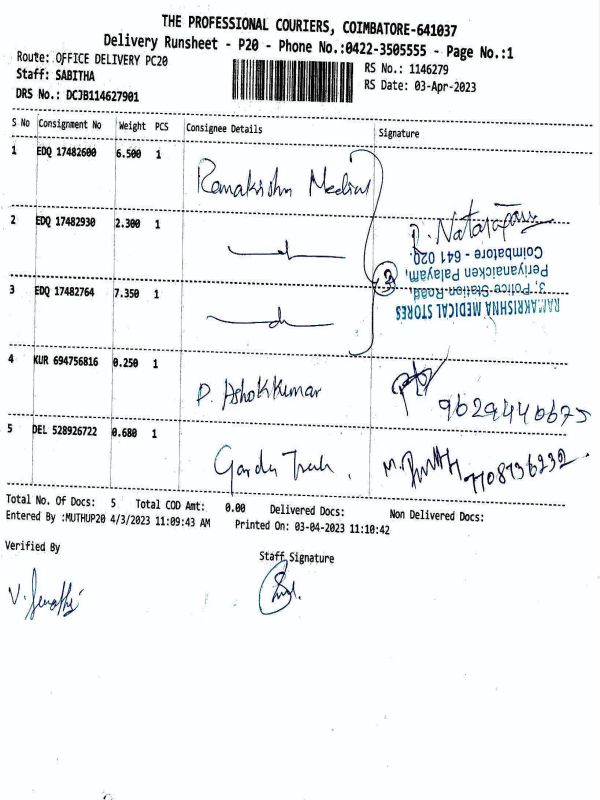 THE PROFESSIONAL COURIERS, COIMBATORE-641037
Delivery Runsheet - P20 - Phone No.:0422-3505555 - Page No.:1
Route: OFFICE DELIVERY PC20
RS No.: 1146279
Staff: SABITHA
RS Date: 03-Apr-2023
DRS No.: DCJB114627901
S No Consignment No Weight PCS Consignee Details Signature
1 EDQ 17482600 6.500 1 Ramakishn Medical
2 EDQ 17482930 2.300 1 R. Natarajan
3 EDQ 17482764 7.350 1 3
RAMAKRISHNA MEDICAL STORES
3, Police Station Road,
Periyanaicken Palayam,
Coimbatore - 641 020.
4 KUR 694756816 0.250 1 P. Ashokkumar 9629440675
5 DEL 528926722 0.680 1 7708736232
Total No. Of Docs: 5 Total COD Amt: 0.00 Delivered Docs: Non Delivered Docs:
Entered By :MUTHUP20 4/3/2023 11:09:43 AM Printed On: 03-04-2023 11:10:42
Verified By
Staff Signature